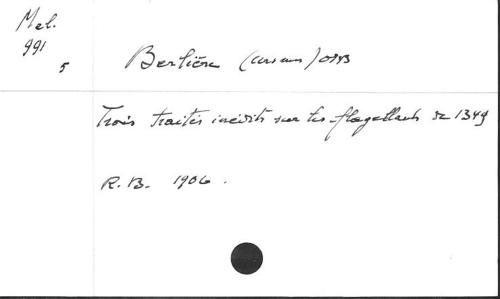 Mel.
991
5
Berlière (Ursmer) OSB
Trois traités inédits sur les flagellants de 1349
R. B. 1906.